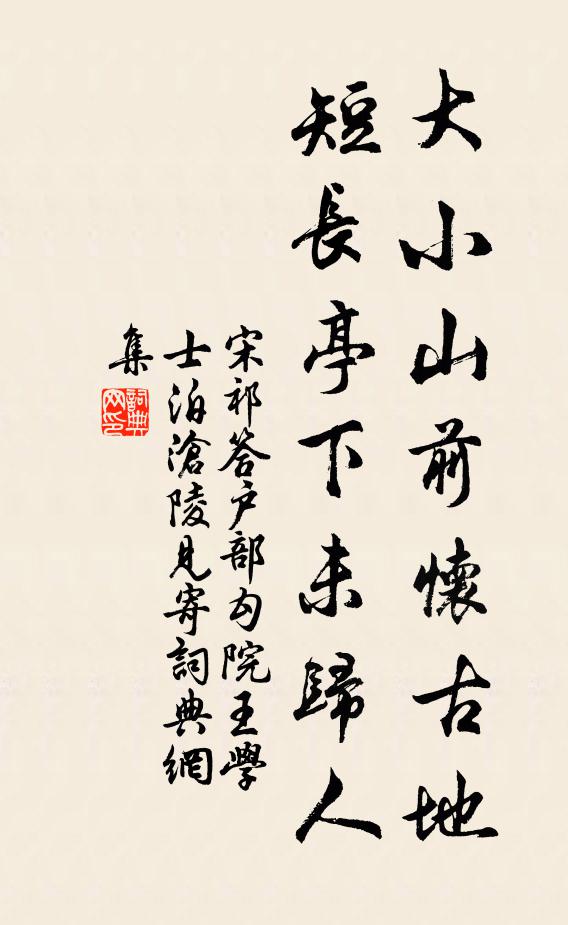 大小山前懷古地
短長亭下未歸人
宋祁答戶部勾院王學
士泊滄陵見寄詞典網
集
詞典
网印